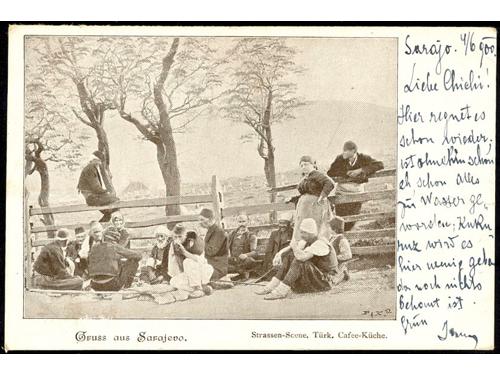 Sarajo. 4/6 900.
Liebe Chichi!
Hier regnet es
schon wieder,
ist ohnehin schon
schon Alles
zu Wasser ge-
worden; Kuku-
ruz wird es
hier wenig geben
da noch nichts
bebaut ist.
Gruss aus Sarajevo.
Strassen-Scene, Türk. Cafee-Küche.